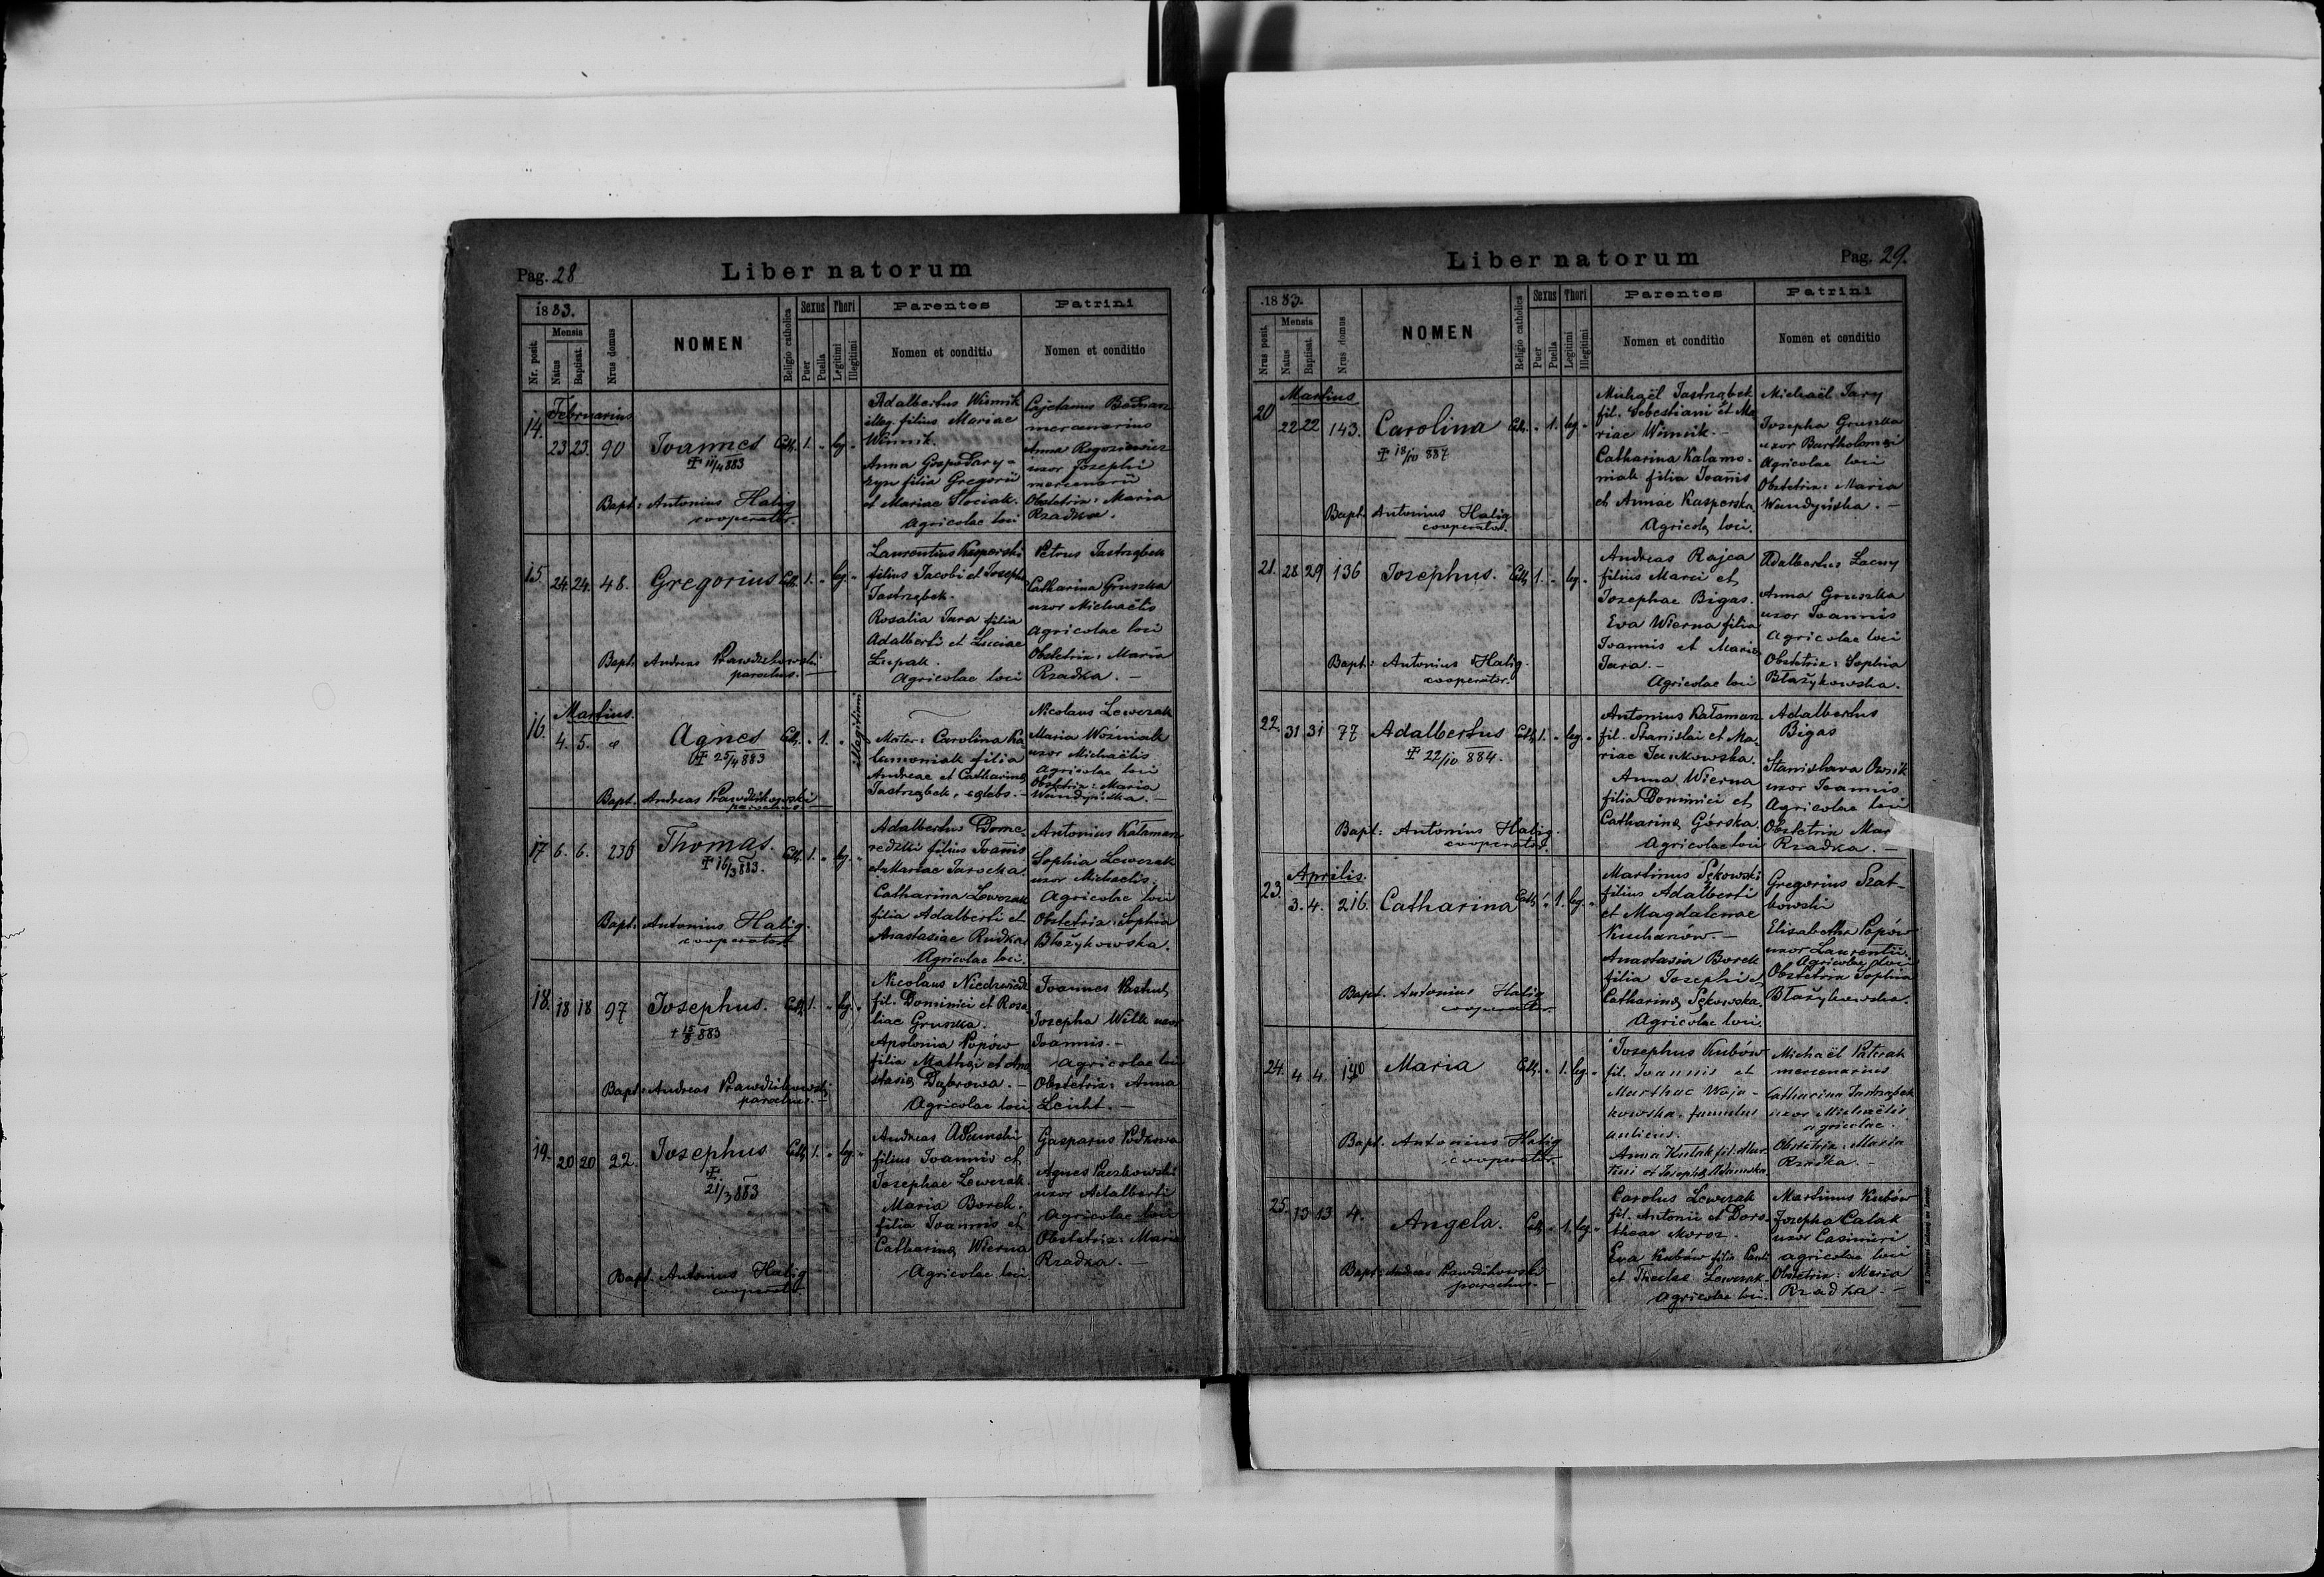 Pag. 28
Liber natorum
1883.
Nr. posit.
Mensis
Natus
Baptisat.
Nrus domus
NOMEN
Religio catholica
Sexus
Puer
Puella
Thori
Legitimi
Illegitimi
Parentes
Nomen et conditio
Patrini
Nomen et conditio
Februarius
14. 23 23. 90 Joannes Cath. 1. " leg. "
11/4 883
Bapt: Antonius Halig
cooperator.
Adalbertus Winnik
illeg. filius Mariae
Winnik.
Anna Gospodary-
filia Gregorii
et Mariae
Agricolae loci
Cajetanus
mercenarius
Anna
uxor Josephi
mercenarii
Obstetrix: Maria
Rzadka.
15. 24. 24. 48. Gregorius Cath. 1. " leg. "
Bapt. Andreas Prawdzikowski
parochus.
Laurentius Kasperski
filius Jacobi et Josepha
Jastrzębek.
Rosalia Jara filia
Adalberti et Luciae
Lupak.
Agricolae loci
Petrus Jastrzębek
Catharina Gruszka
uxor Michaëlis
Agricolae loci
Obstetrix: Maria
Rzadka. —
Martius.
16. 4. 5. Agnes Cath. " 1. " illegitimi
25/4 883
Bapt. Andreas Prawdzikowski
parochus
Mater: Carolina Ka
lamoniak filia
Andreae et Catharina
Jastrzębek,
Nicolaus Lewczak
Maria Woźniak
uxor Michaëlis
Agricolae loci
Obstetrix: Maria
Wundyńska. —
17 6. 6. 236 Thomas. Cath. 1. " leg. "
16/3 883.
Bapt. Antonius Halig.
cooperator
Adalbertus Dome-
redzki filius Joañis
et Mariae Jarocka.
Catharina Lewczak
filia Adalberti et
Anastasiae Rudka
Agricolae loci.
Antonius Kałaman
Sophia Lewczak
uxor Michaelis.
Agricolae loci
Obstetrix: Sophia
Błażykowska.
18. 18 18 97 Josephus. Cath. 1. " leg. "
883
Bapt: Andreas Prawdzikowski
parochus. —
Nicolaus Niedzwiedz
fil. Dominici et Rosa
liae Gruszka.
Apolonia Popów
filia
Dąbrowa. —
Agricolae loci
Joannes
Josepha Wilk uxor
Joannis. —
Agricolae loci
Obstetrix: Anna
Leicht. —
19. 20 20 22. Josephus Cath. 1. " leg. "
21/3 883
Bapt. Antonius Halig
cooperator
Andreas Adamski
filius Joannis et
Josephae Lewczak.
Maria Borek.
filia Joannis et
Catharina Wierna
Agricolae loci
Gasparus Podkowa
Agnes
uxor Adalberti
Agricolae loci
Obstetrix: Maria
Rzadka. —
Liber natorum
Pag. 29.
1883.
Nrus posit.
Mensis
Natus
Baptisat.
Nrus domus
NOMEN
Religio catholica
Sexus
Puer
Puella
Thori
Legitimi
Illegitimi
Parentes
Nomen et conditio
Patrini
Nomen et conditio
Martius
20 22 22 143. Carolina Cath. " 1. leg. "
18/10 887
Bapt. Antonius Halig
cooperator.
Michaël Jastrzębek
fil. Sebestiani et Ma
riae Winnik. —
Catharina Kalamo-
niak filia Joañis
et Annae Kasperska
Agricolae loci.
Michaël Jary
Josepha Gruszka
uxor Bartholomaei
Agricolae loci
Obstetrix: Maria
Wundyńska. —
21. 28 29 136 Josephus. Cath. 1. " leg. "
Bapt: Antonius Halig.
cooperator.
Andreas Rajca
filius Marci et
Josephae Bigas.
Eva Wierna filia
Joannis et Maria
Jara. —
Agricolae loci
Adalbertus Lacny
Anna Gruszka
uxor Joannis
Agricolae loci
Obstetrix: Sophia
Błażykowska.
22. 31 31 77 Adalbertus Cath. 1. " leg. "
22/10 884.
Bapt: Antonius Halig.
cooperator.
Antonius Kałaman
fil. Stanislai et Ma-
riae Jankowska.
Anna Wierna
filia Dominici et
Catharina Górska.
Agricolae loci
Adalbertus
Bigas
Stanislava
uxor Joannis
Agricolae loci
Obstetrix Mar
Rzadka. —
Aprilis.
23. 3. 4. 216. Catharina Cath. " 1. leg. "
Bapt. Antonius Halig
cooperator
Martinus Sękowski
filius Adalberti
et Magdalenae
Kucharów. —
Anastasia Borek
filia Josephi et
Catharina Sękowska.
Agricolae loci.
Gregorius Szat-
kowski
Elisabetha Popów
uxor Laurentii.
Agricolae loci
Obstetrix Sophia
Błażykowska.
24. 4 4. 140 Maria Cath. " 1. leg. "
Bapt. Antonius Halig
cooperator
Josephus Kubów
fil. Joannis et
Marthae Woja-
kowska, famulus
aulicus.
Anna fil. Mar-
tini et Josepha Adamska
Michaël Paterak
mercenarius
Catharina Jastrzębek
uxor Michaëlis
agricolae.
Obstetrix: Maria
Rzadka. —
25. 13 13 4. Angela. Cath. " 1. leg. "
Bapt: Andreas Prawdzikowski
parochus. —
Carolus Lewczak
fil. Antonii et Doro-
theae Moroz.
Eva Kubów filia Pauli
et Theclae Lewczak.
Agricolae loci.
Martinus Kubów
Josepha Calak
uxor Casimiri
agricolae loci
Obstetrix: Maria
Rzadka. —